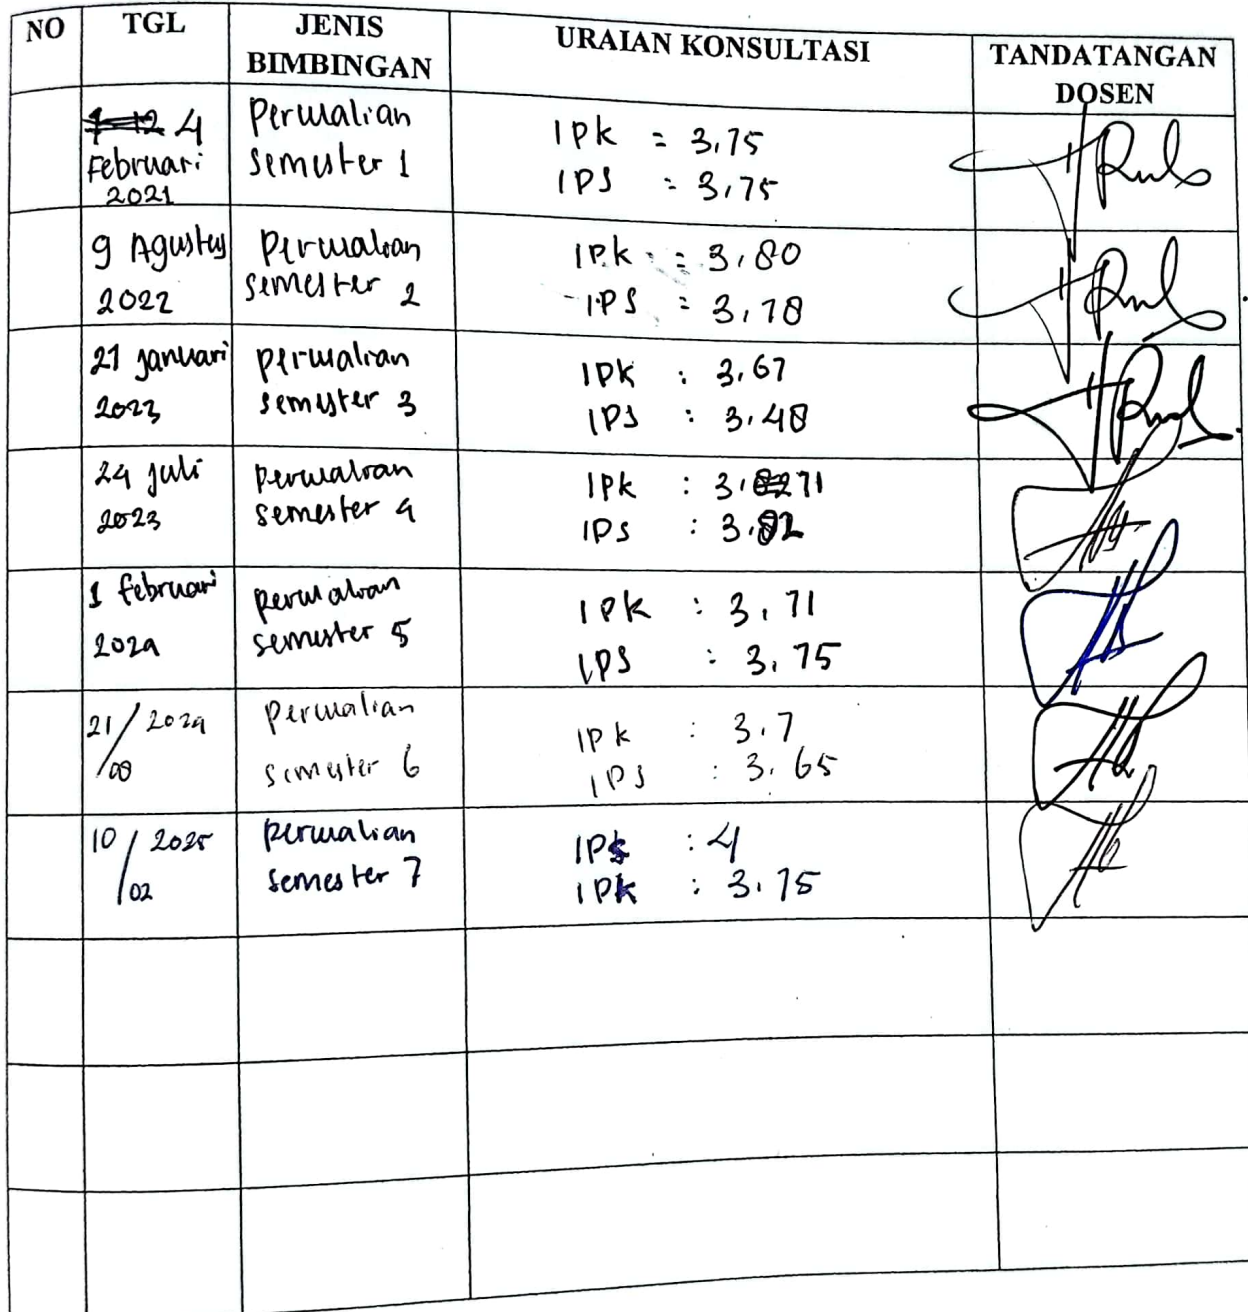 NO TGL JENIS BIMBINGAN URAIAN KONSULTASI TANDATANGAN DOSEN
4 Februari 2021 Perwalian Semester 1
IPK = 3,75
IPS = 3,75
9 Agustus 2022 Perwalian Semester 2
IPK : = 3,80
IPS = 3,78
21 januari 2023 perwalian semester 3
IPK : 3,67
IPS : 3,48
24 juli 2023 perwalian semester 4
IPK : 3,71
IPS : 3,82
1 februari 2024 perwalian semester 5
IPK : 3,71
IPS : 3,75
21/08 2024 Perwalian semester 6
IPK : 3.7
IPS : 3.65
10/02 2025 perwalian semester 7
IPS : 4
IPK : 3.75